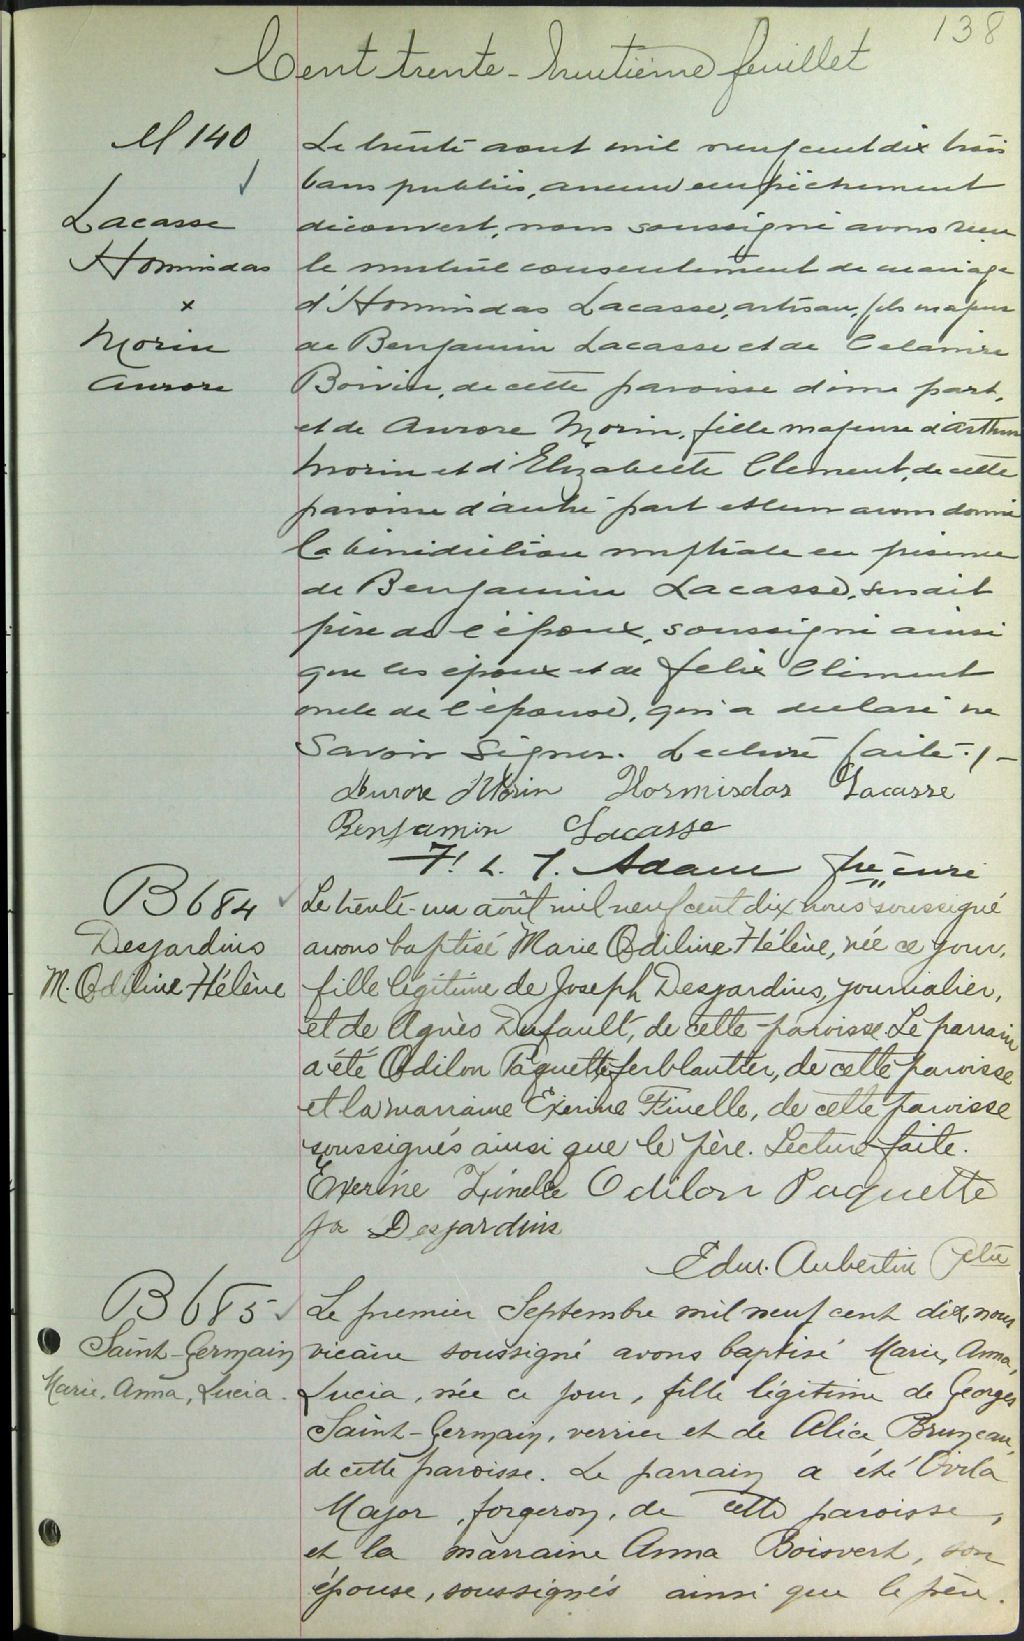 138
Cent trente-huitième feuillet
M 140
Lacasse
Hormisdas
x
Morin
Aurore
Le trente aout mil neuf cent dix trois
bans publiés, aucun empêchement
découvert, nous soussigné avons reçu
le mutuel consentement de mariage
d'Hormisdas Lacasse, artisan, fils majeur
de Benjamin Lacasse et de
Boivin, de cette paroisse d'une part,
et de Aurore Morin, fille majeure d'Arthur
Morin et d'Elizabeth Clement, de cette
paroisse d'autre part et leur avons donné
la bénédiction nuptiale en présence
de Benjamin Lacasse,
père de l'époux, soussigné ainsi
que les époux et de felix Clément
oncle de l'épouse, qui a declaré ne
Savoir Signer. Lecture faite ./-
Aurore Morin Hormisdas Lacasse
Benjamin Lacasse
F. L. T. Adam ptre curé
B 684
Desjardins
M. Odiline Hélène
Le trente-un août mil neuf cent dix nous soussigné
avons baptisé Marie Odiline Hélène, née ce jour,
fille légitime de Joseph Desjardins, journalier,
et de Agnès Dufault, de cette paroisse. Le parrain
a été Odilon Paquette, ferblantier, de cette paroisse
et la marraine Exerine Finelle, de cette paroisse
soussignés ainsi que le père. Lecture faite.
Exerine Finelle Odilon Paquette
Jos Desjardins
Edm. Aubertin Ptre
B 685
Saint-Germain
Marie, Anna, Lucia.
Le premier Septembre mil neuf cent dix, nous
vicaire soussigné avons baptisé Marie, Anna,
Lucia, née ce jour, fille légitime de Georges
Saint-Germain, verrier et de Alice Bruneau,
de cette paroisse. Le parrain a été Ovila
Major, forgeron, de cette paroisse,
et la marraine Anna Boisvert, son
épouse, soussignés ainsi que le père.